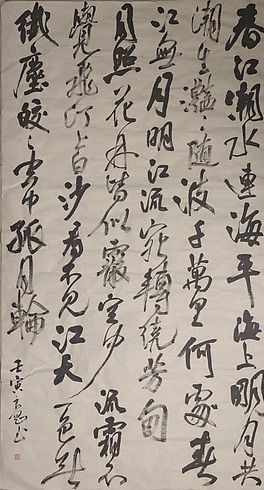 春江潮水連海平海上明月共
潮生灩〻隨波千萬里何處春
江無月明江流宛轉繞芳甸
月照花林皆似霰空里流霜不
覺飛汀上白沙看不見江天一色無
纖塵皎〻空中孤月輪
壬寅